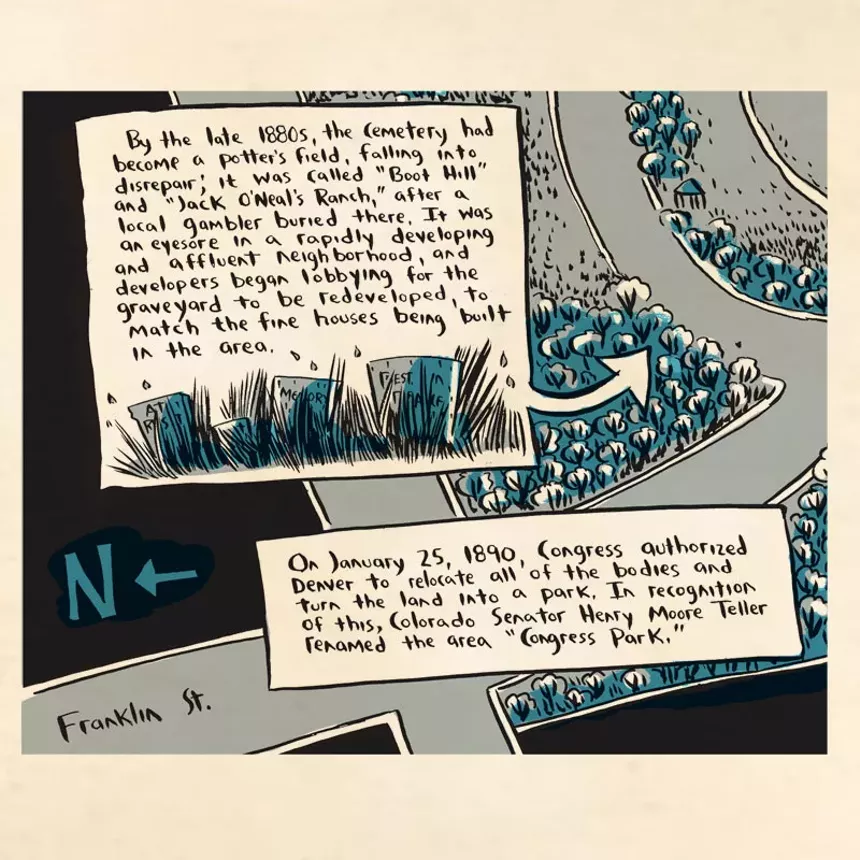 By the late 1880s, the cemetery had
become a potter's field, falling into
disrepair; it was called "Boot Hill"
and "Jack O'Neal's Ranch," after a
local gambler buried there. It was
an eyesore in a rapidly developing
and affluent neighborhood, and
developers began lobbying for the
graveyard to be redeveloped, to
match the fine houses being built
in the area.
AT
REST
MEMORY
REST IN
PEACE
On January 25, 1890, Congress authorized
Denver to relocate all of the bodies and
turn the land into a park. In recognition
of this, Colorado Senator Henry Moore Teller
renamed the area "Congress Park."
N
Franklin St.